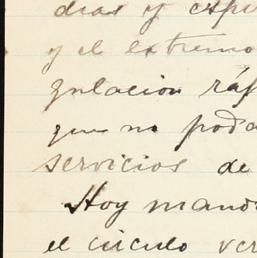 dias y espi
y el extremo
gulacion ráp
que no poda
servicios de
Hoy mando
el círculo ver